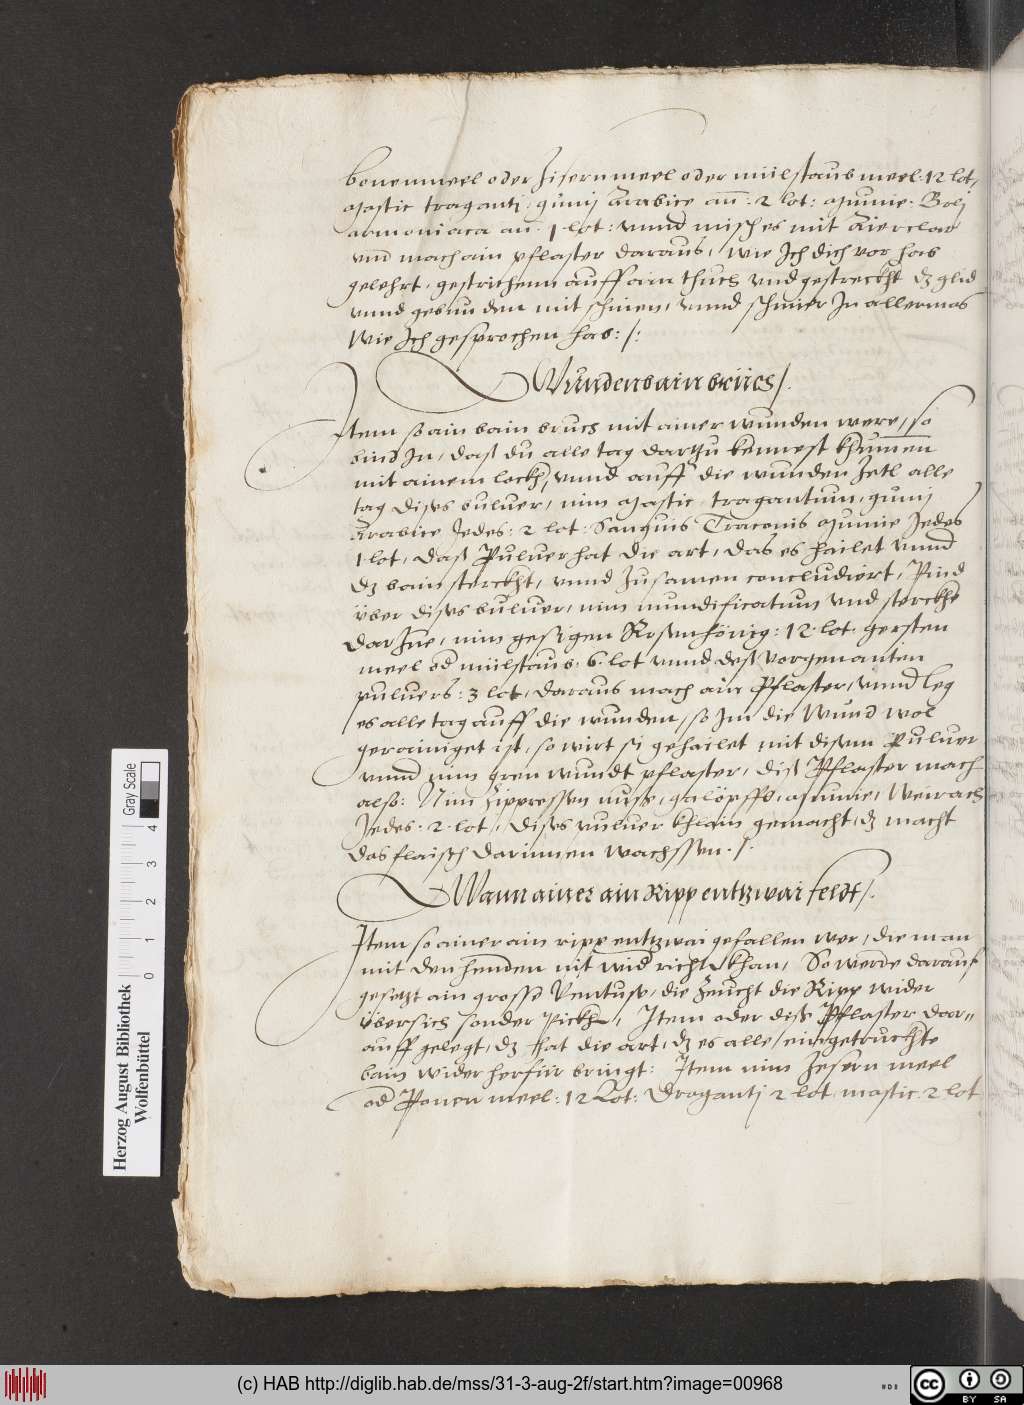 bonenmeel oder Zisernmeel oder mülstaub meel 12 lot,
Mastic traganti, gumi Arabice añ: 2 lot: Mumie Boli
armoniaca añ 1 lot: vnnd misch es mit Aierclar
vnd mach ain pflaster daraus, wie Ich dich vor hab
gelehrt, gestrichenn auff ain thuch vnd gestreckht dz glid
vnnd gebunden mit schinen, vnnd schmier In allermas
wie Ich gesprochen hab:/:
Wunden bainbruch/.
Item so ain bain bruch mit ainer wunden were, so
bind In, dass du alle tag dartzu kennest khumen
mit ainem lockh, vnnd auff die wunden Zetl alle
tag dises buluer, nim Mastic, tragantum, gumi
Arabice Jedes: 2 lot Sanguis Traconis Mumie Jedes
1 lot, dass Puluer hat die art, das es hailet vnnd
dz bain sterckht, vnnd Zusamen concludiert, Pind
über dises buluer, nim mundificatum vnd sterckhe
dar Ine, nim gesigen Rosenhönig: 12 lot gersten
meel od mülstaub 6 lot vnnd dess vorgenanten
puluers: 3 lot, daraus mach ain Pflaster, vnnd leg
es alle tag auff die wunden, so Im die Wund wol
gerainiget ist, so wirt si gehailet mit disem Puluer
vnnd nim gren wundt pflaster, diss Pflaster mach
also: Nim Zippressen nuss, galöpffl, Mumie, Weirach
Jedes 2 lot, dises puluer khlain gemacht, dz macht
das flaisch darinnen wachssen./.
Wann ainer ain Ripp entzwai feldt/.
Item so ainer ain ripp entzwai gefallen wer, die man
mit den henden nit wid richtn khan, So werde darauf
gesetzt ain grosse Ventuse, die Zeucht die Ripp wider
übersich sonder Pickhn, Item oder diss Pflaster dar=
auff gelegt, dz hat die art, dz es alle eingetruckhte
bain wider herfür bringt: Item nim Zesern meel
od Ponen meel: 12 Lot: Draganti 2 lot mastic 2 lot
Herzog August Bibliothek
Wolfenbüttel
0 1 2 3 4
Gray Scale
(c) HAB http://diglib.hab.de/mss/31-3-aug-2f/start.htm?image=00968
cc BY SA